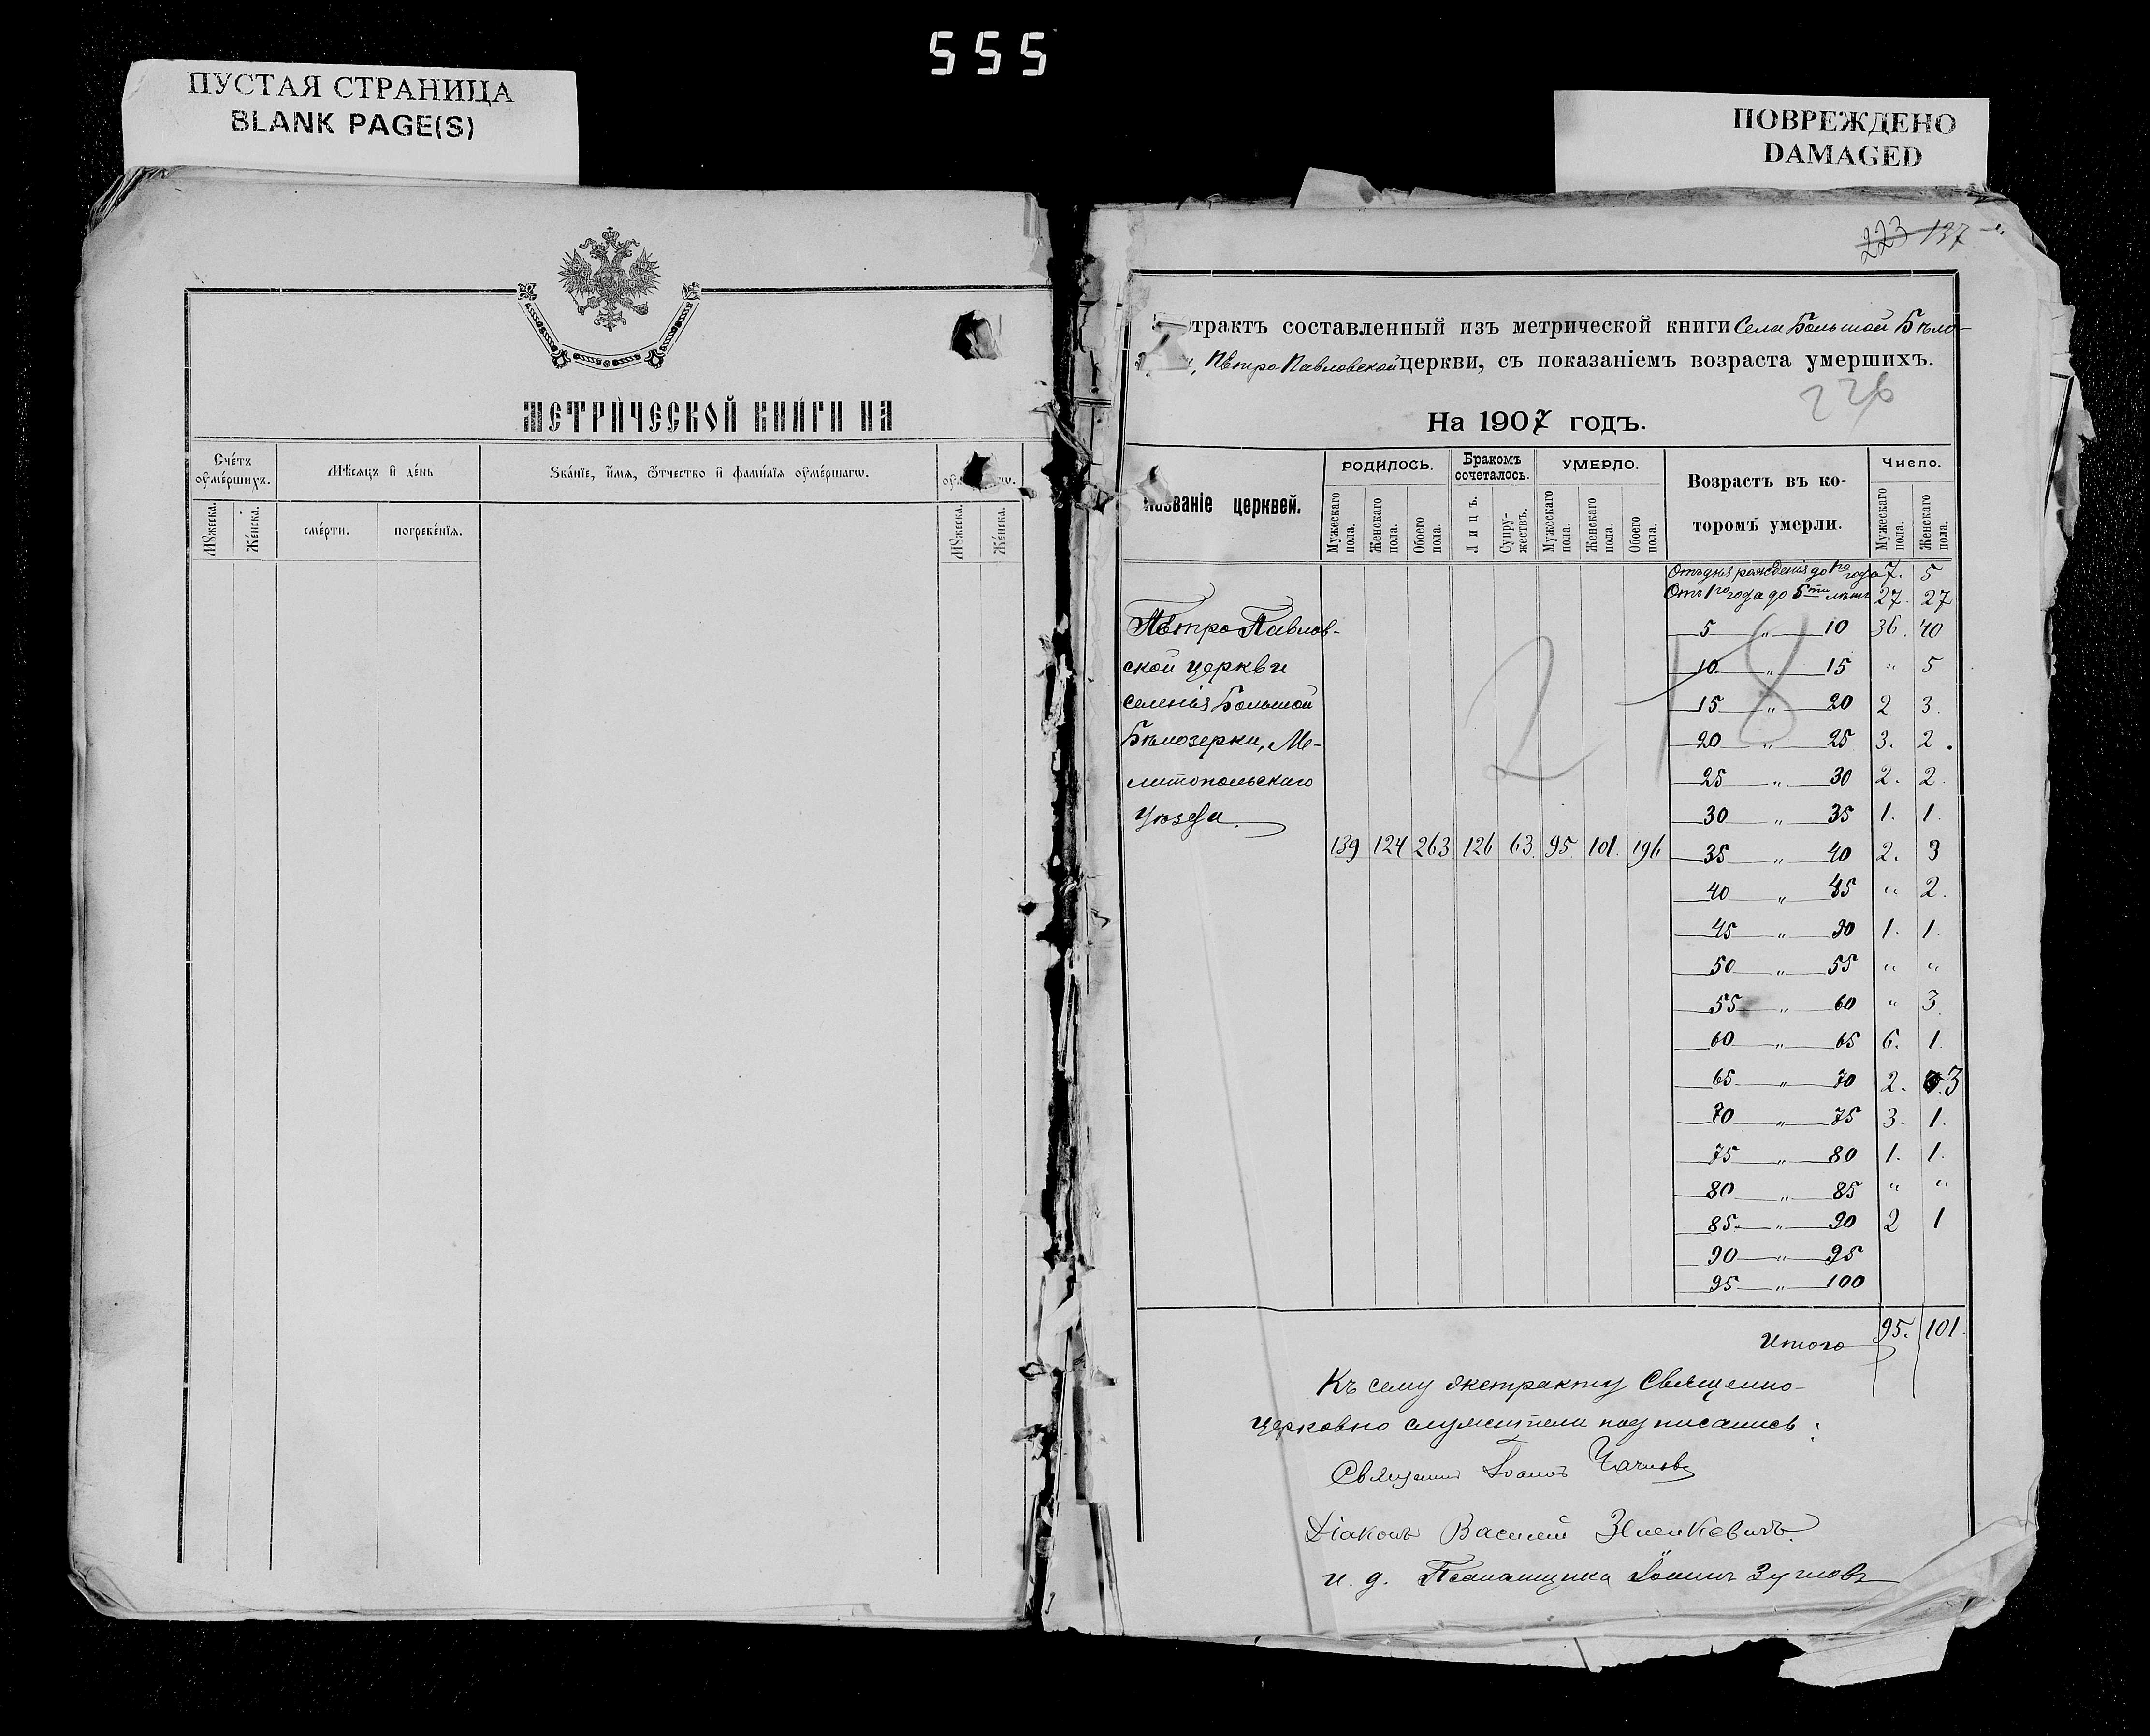 555
ПУСТАЯ СТРАНИЦА
BLANK PAGE(S)
ПОВРЕЖДЕНО
DAMAGED
МЕТРИ́ЧЕСКОЙ КНИ́ГИ НА
Сче́тъ ᲂу҆ме́ршихъ.
Мѣ́сѧцъ и҆ де́нь
Ѕва́нїе, и҆́мѧ, ѻ҆́тчество и҆ фами́лїѧ ᲂу҆ме́ршагѡ.
Мꙋ́жеска.
Же́нска.
сме́рти.
погребе́нїѧ.
Мꙋ́жеска.
Же́нска.
223 137
трактъ составленный изъ метрической книги Села Большой Бѣло-
Петро Павловской церкви, съ показаніемъ возраста умершихъ.
226
На 1907 годъ.
Названіе церквей.
РОДИЛОСЬ.
Бракомъ сочеталось.
УМЕРЛО.
Возрастъ въ которомъ умерли.
Число.
Мужескаго пола.
Женскаго пола.
Обоего пола.
Лицъ.
Супружествъ.
Мужескаго пола.
Женскаго пола.
Обоего пола.
Мужескаго пола.
Женскаго пола.
Отъ дня рожденія до 1го года 7. 5
Отъ 1го года до 5ти лѣтъ 27. 27
Петро Павлов-
5 „ 10 36. 40
ской церкви
10 „ 15 „ 5
селенія Большой
15 „ 20 2 3.
Бѣлозерки, Ме-
20 „ 25 3. 2.
218
литопольскаго
25 „ 30 2. 2.
Уѣзда.
30 „ 35 1. 1.
139 124 263 126 63. 95. 101. 196
35 „ 40 2. 3
40 „ 45 „ 2.
45 „ 50 1. 1.
50 „ 55 „ „
55 „ 60 „ 3.
60 „ 65 6. 1.
65 „ 70 2. 3
70 „ 75 3. 1.
75 „ 80 1. 1.
80 „ 85 „ „
85 „ 90 2 1
90 „ 95
95 „ 100
Итого 95. 101.
Къ сему экстракту Священно-
церковно служители подписались:
Священникъ Іоаннъ
Діаконъ Василій
и. д. Псаломщика